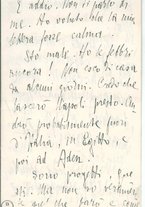 E addio. Non ti parlo di
me. Ho voluto che la mia
lettera fosse calma.
Sto male. Ho la febbre
ancora! Non esco di casa
da alcuni giorni. Credo che
lascerò Napoli presto. An-
drò probabilmente fuori
d'Italia, in Egitto, e
poi ad Aden.
Sono progetti, que-
sti. Ma non so veramen-
te che sarà e come